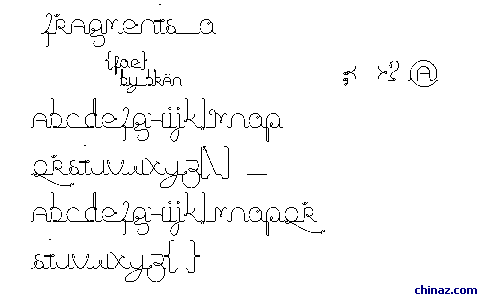 fragments_a
{fae}
by åkän
Abcdefghijklmnop
qrstuvwxyz[\] _
Abcdefghijklmnopqr
stuvwxyz{ }
chinaz.com